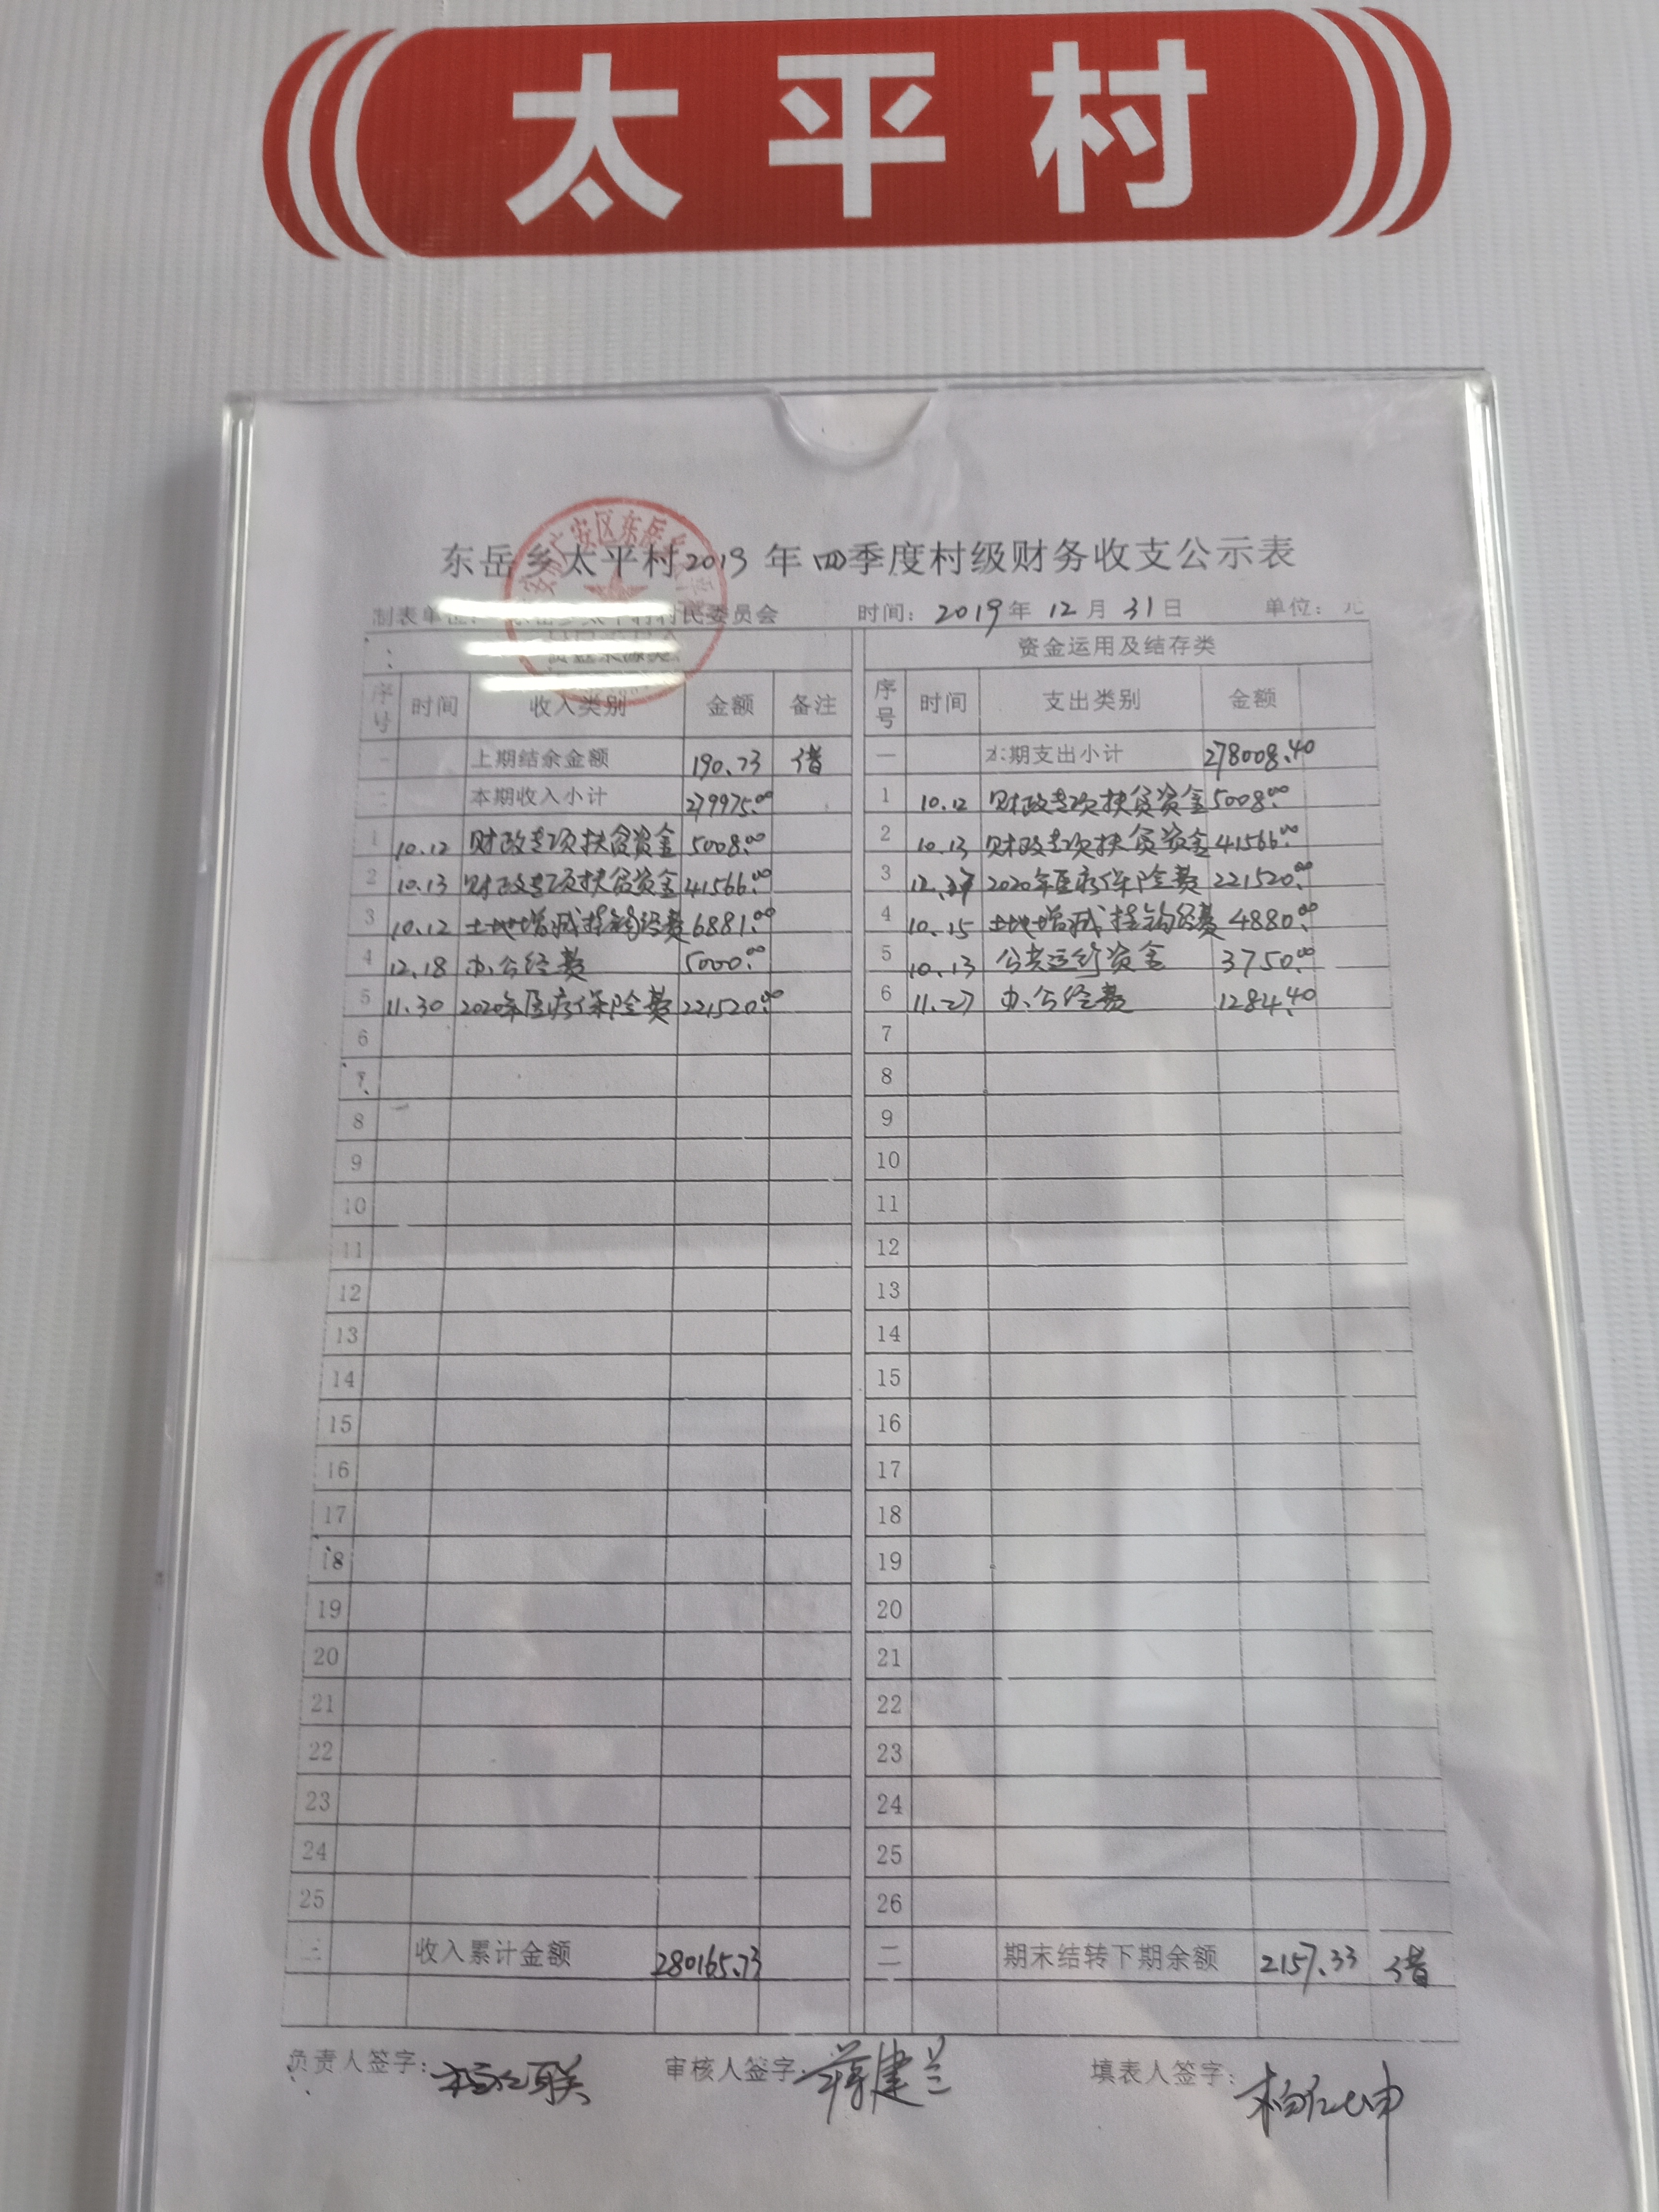 太平村
广安区东岳
东岳乡太平村2019年四季度村级财务收支公示表
制表单位: 东岳乡太平村村民委员会 时间: 2019年12月31日 单位: 元
资金来源类 资金运用及结存类
序号 时间 收入类别 金额 备注 序号 时间 支出类别 金额
一 上期结余金额 190.73 借 一 本期支出小计 278008.40
二 本期收入小计 279975.00 1 10.12 财政专项扶贫资金 5008.00
1 10.12 财政专项扶贫资金 5008.00 2 10.13 财政专项扶贫资金 41566.00
2 10.13 财政专项扶贫资金 41566.00 3 2020年医疗保险费 221520.00
3 10.12 土地增减挂钩经费 6881.00 4 10.15 土地增减挂钩经费 4880.00
4 12.18 办公经费 5000.00 5 10.13 公共运行资金 3750.00
5 11.30 2020年医疗保险费 221520.00 6 11.27 办公经费 1284.40
6 7
7 8
8 9
9 10
10 11
11 12
12 13
13 14
14 15
15 16
16 17
17 18
18 19
19 20
20 21
21 22
22 23
23 24
24 25
25 26
三 收入累计金额 280165.73 二 期末结转下期余额 2157.33 借
负责人签字: 审核人签字: 蒋建兰 填表人签字: 柏仁坤